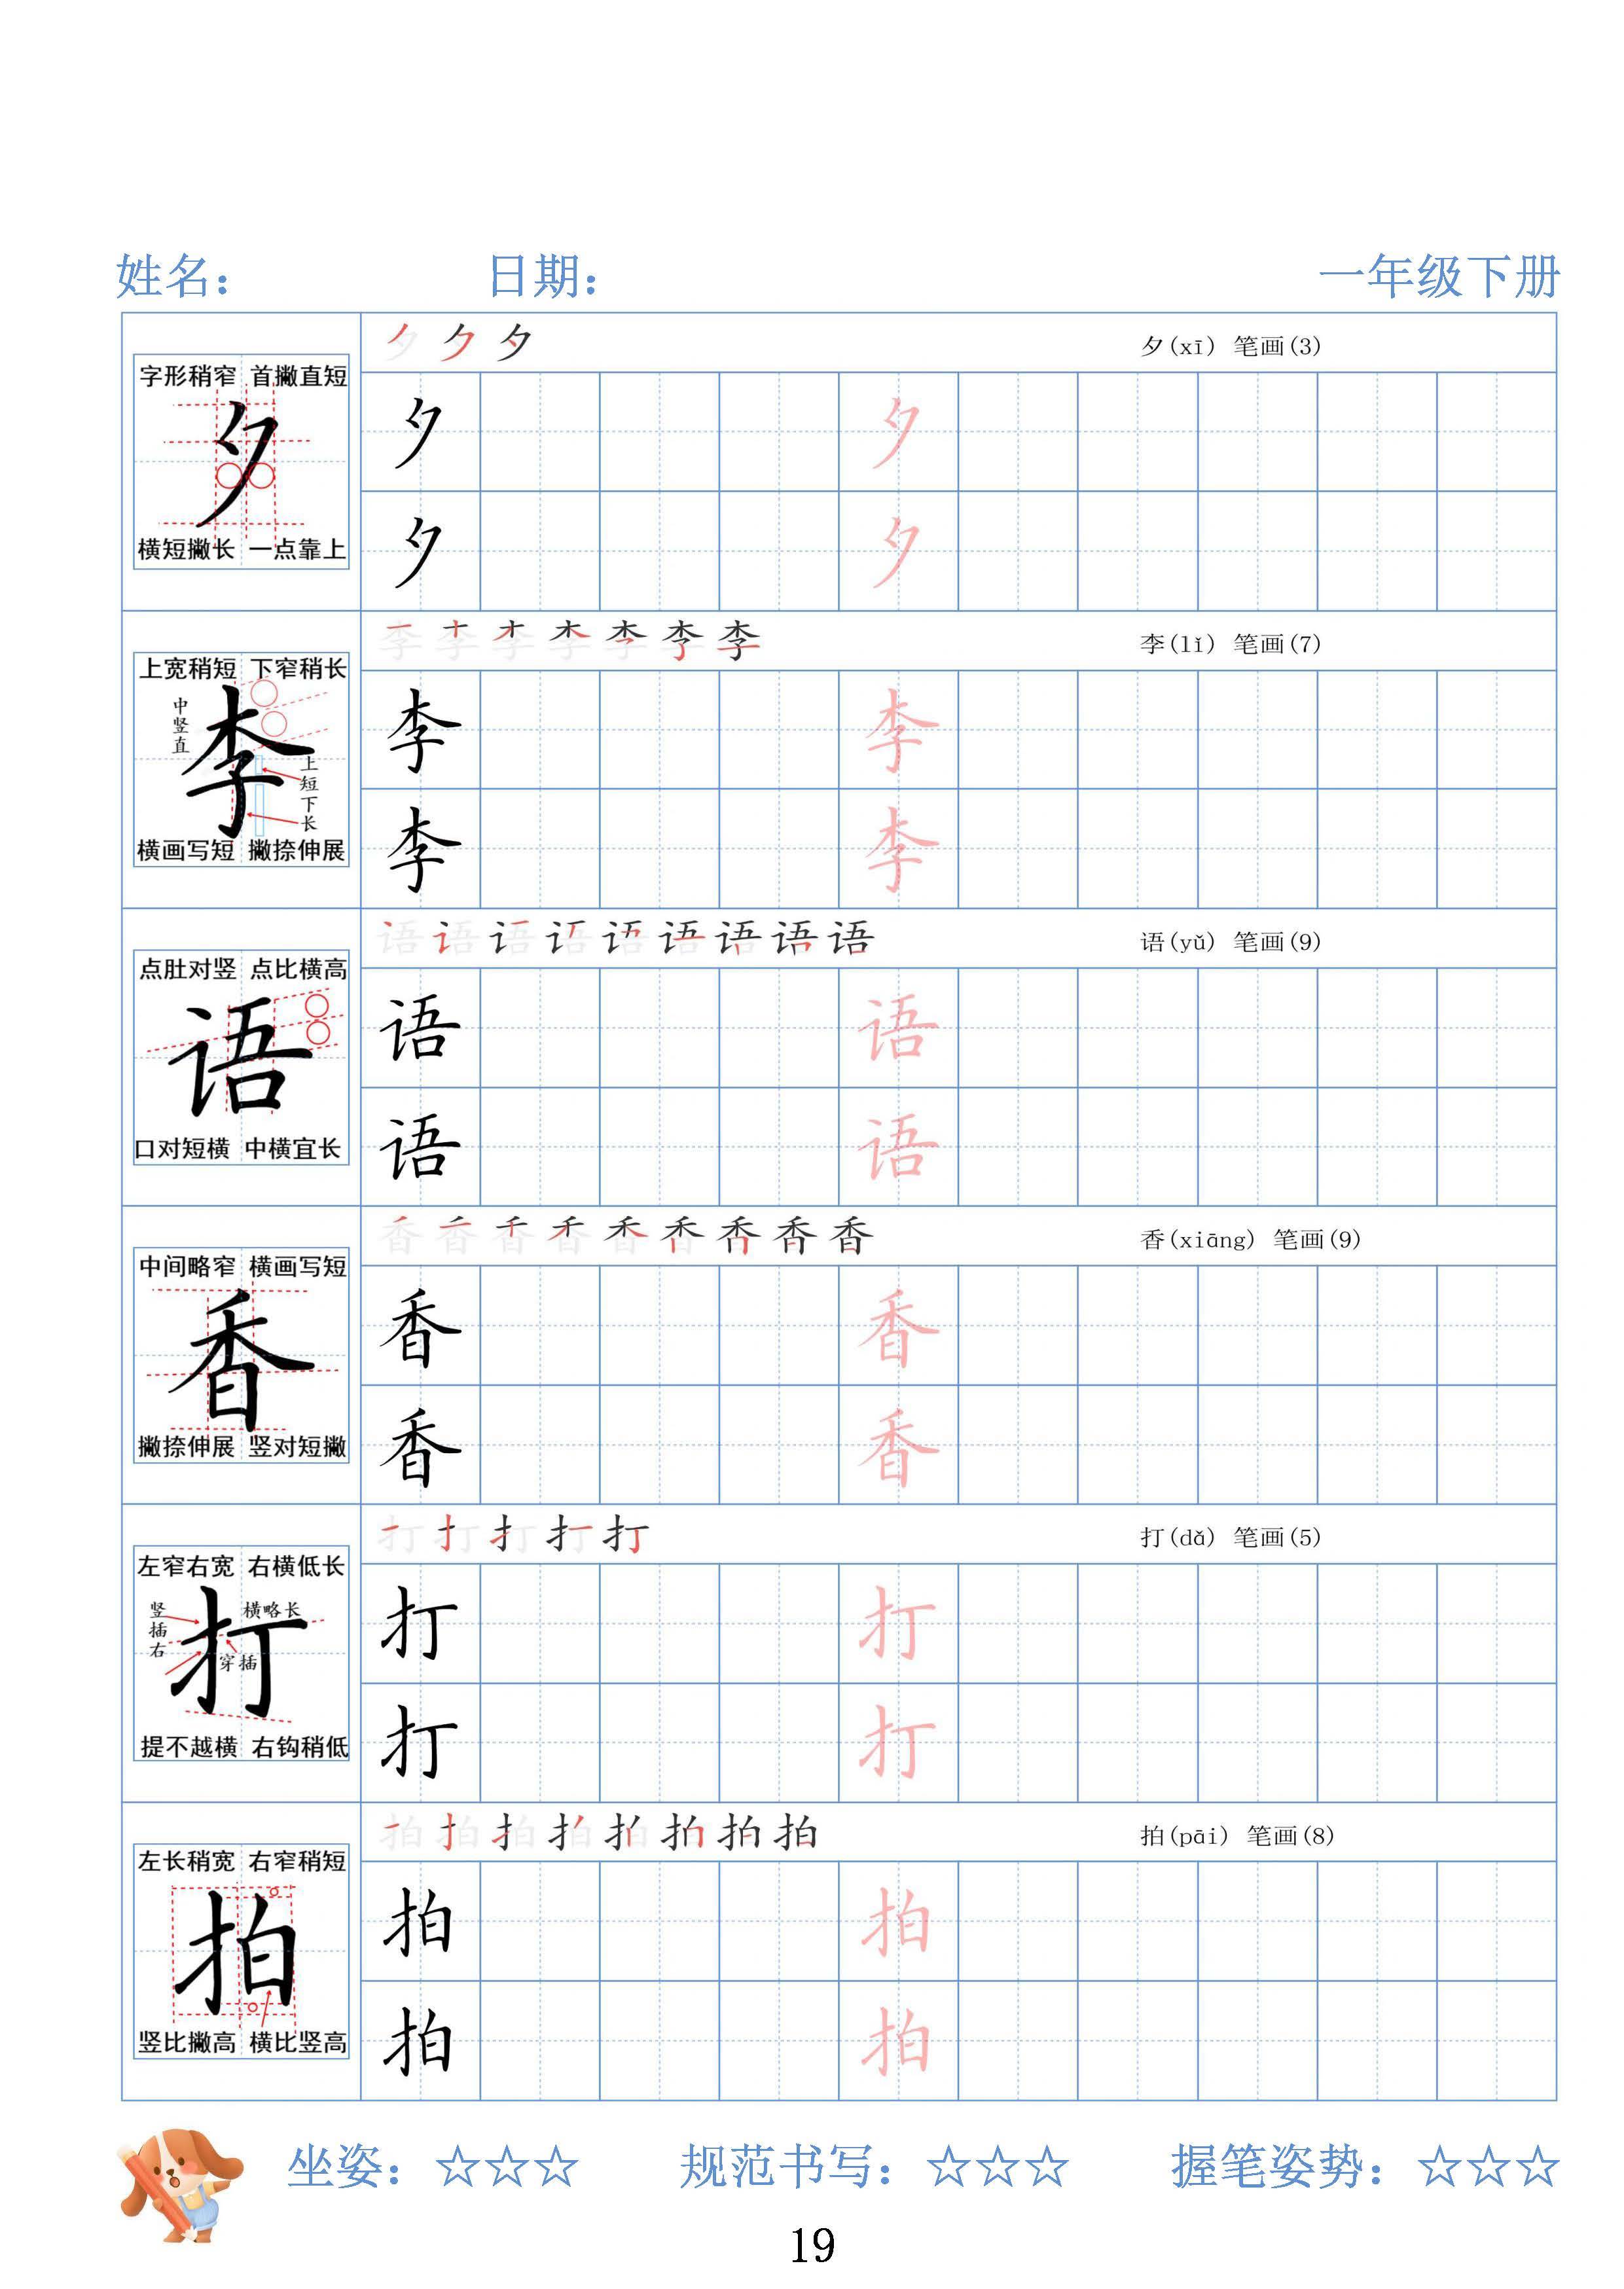 姓名： 日期： 一年级下册
夕 夕 夕 夕(xī) 笔画(3)
字形稍窄 首撇直短
夕
横短撇长 一点靠上
夕 夕
夕 夕
李 李 李 李 李 李 李 李(lǐ) 笔画(7)
上宽稍短 下窄稍长
中竖直
李
上短下长
横画写短 撇捺伸展
李 李
李 李
语 语 语 语 语 语 语 语 语 语(yǔ) 笔画(9)
点肚对竖 点比横高
语
口对短横 中横宜长
语 语
语 语
香 香 香 香 香 香 香 香 香 香(xiāng) 笔画(9)
中间略窄 横画写短
香
撇捺伸展 竖对短撇
香 香
香 香
打 打 打 打 打 打(dǎ) 笔画(5)
左窄右宽 右横低长
竖插右
横略长
打
穿插
提不越横 右钩稍低
打 打
打 打
拍 拍 拍 拍 拍 拍 拍 拍 拍(pāi) 笔画(8)
左长稍宽 右窄稍短
拍
竖比撇高 横比竖高
拍 拍
拍 拍
坐姿：☆☆☆ 规范书写：☆☆☆ 握笔姿势：☆☆☆
19